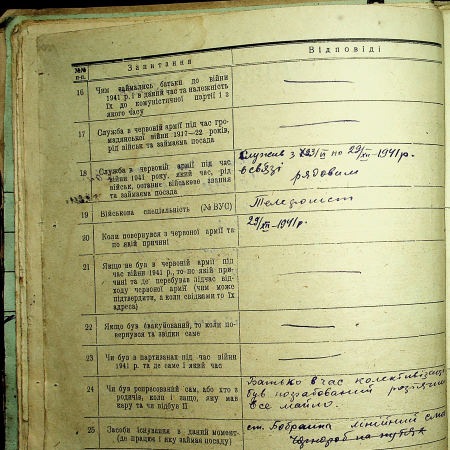 №№ п-п.
Запитання
Відповіді
16
Чим займались батьки до війни
1941 р. і в даний час та належність
їх до комуністичної партії і з
якого часу
17
Служба в червоній армії під час гро-
мадянської війни 1917—22 років,
рід військ та займаєма посада
18
Служба в червоній армії під час
війни 1941 року, який час, рід
військ, останнє військове звання
та займаєма посада
Служив з 23/VI по 29/XII-1941 р.
в связі рядовим
19
Військова спеціальність (№ ВУС)
Телефонист
20
Коли повернувся з червоної армії та
по якій причині
29/XII-1941 р.
21
Якщо не був в червоній армії під
час війни 1941 р., то по якій при-
чині та де перебував підчас від-
ходу червоної армії (чим може
підтвердити, а коли свідками то їх
адреса)
22
Якщо був евакуйований, то коли по-
вернувся та звідки саме
23
Чи був в партизанах під час війни
1941 р. та де саме і який час
24
Чи був репресований сам, або хто з
родичів, коли і защо, яку мав
кару та чи відбув її
Батько в час колективізаці
був
все майно.
25
Засоби існування в даний момент-
(де працює і яку займає посаду)
ст. Бобринка лінійний